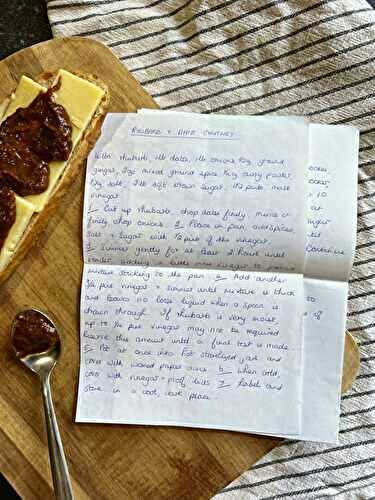 RHUBARB + DATE CHUTNEY
rhubarb, 1lb dates, 1lb onions, ground
ginger, mixed ground spice, curry powder
salt, 1lb soft brown sugar, pints malt
vinegar
1 Cut up rhubarb, chop dates finely, mince or
finely chop onions. 2 Place in pan, add spices
salt + sugar with 1/2 pint of the vinegar.
3 Simmer gently for at least 2 hours until
tender, adding a little more vinegar to prevent
mixture sticking to the pan. 4 Add another
pint vinegar + simmer until mixture is thick
and leaves no loose liquid when a spoon is
drawn through. If rhubarb is very moist,
up to 1/2 pint vinegar may not be required
Reserve this amount until a final test is made
5 Pot at once into hot sterilized jars and
cover with waxed paper discs. 6 When cold,
cover with vinegar-proof lids 7 Label and
store in a cool, dark place.
sugar
Container
to
of